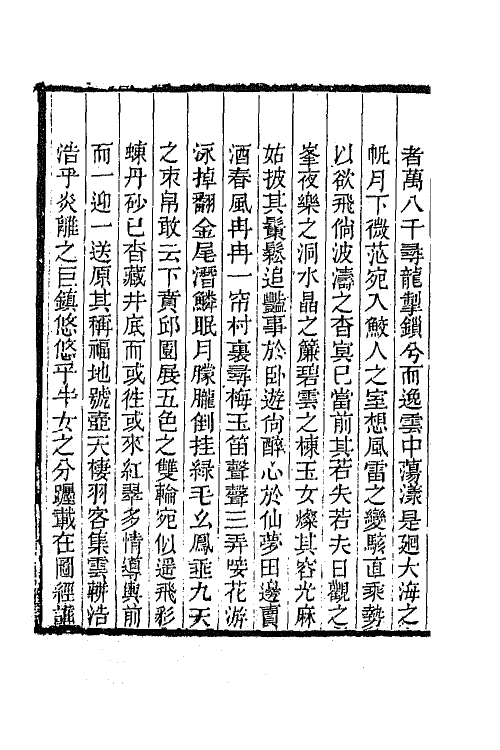 者萬八千尋龍掣鎖兮而逸雲中蕩漾是廻大海之
帆月下微茫宛入鮫人之室想風雷之變駭直乘勢
以欲飛倘波濤之杳㝠已當前其若失若夫日觀之
峯夜樂之洞水晶之簾碧雲之棟玉女燦其容光麻
姑披其鬢鬆追豔事於臥遊尙醉心於仙夢田邊賣
酒春風冉冉一帘村裏尋梅玉笛聲聲三弄唼花游
泳掉翻金尾潛鱗眠月朦朧倒挂綠毛幺鳳乖九天
之束帛敢云下賁邱園展五色之雙輪宛似遥飛彩
蝀丹砂已杳藏井底而或徃或來紅翠多情導輿前
而一迎一送原其稱福地號壺天棲羽客集雲軿浩
浩乎炎離之巨鎮悠悠乎牛女之分躔載在圖經